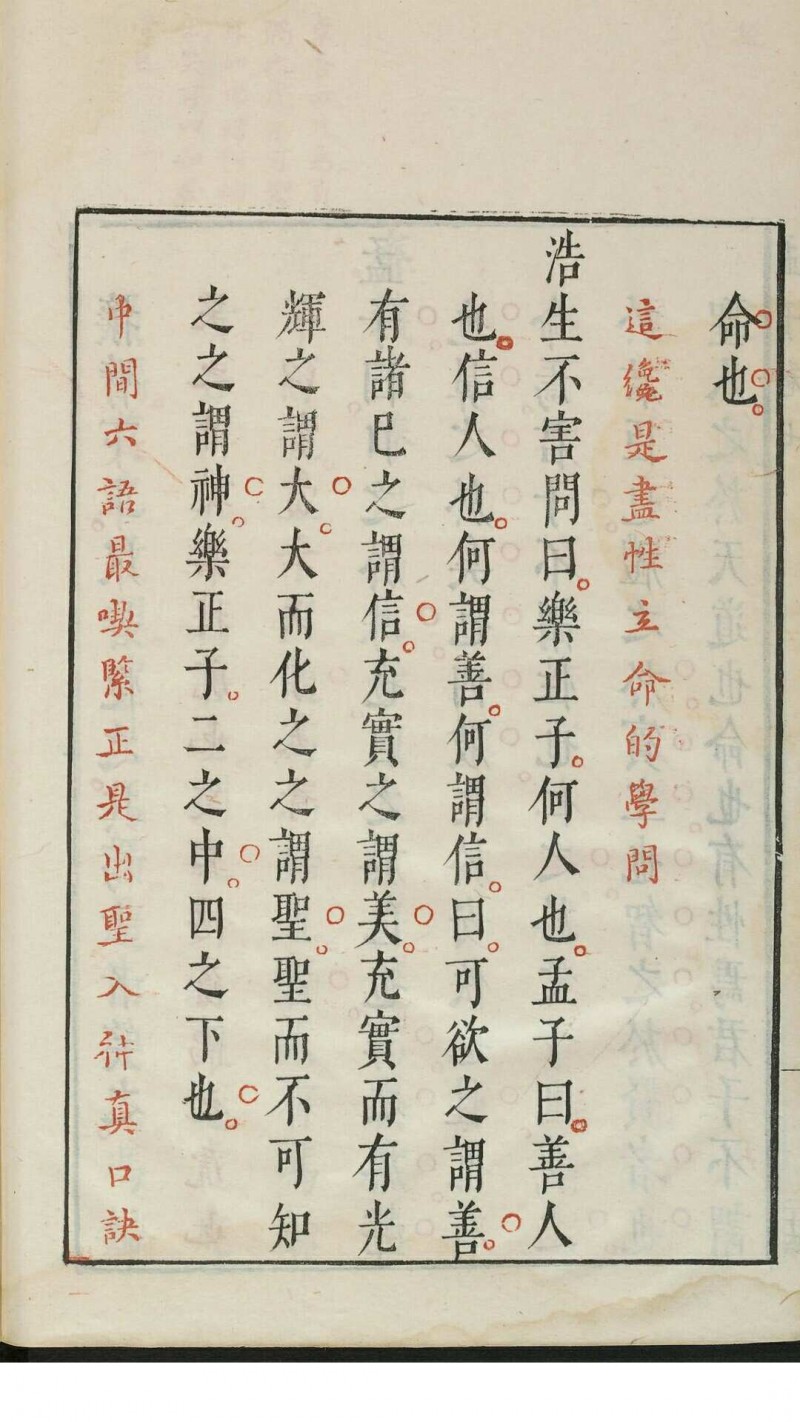 命也
這纔是盡性立命的學問
浩生不害問曰樂正子何人也孟子曰善人
也信人也何謂善何謂信曰可欲之謂善
有諸己之謂信充實之謂美充實而有光
輝之謂大大而化之之謂聖聖而不可知
之之謂神樂正子二之中四之下也
中間六語最喫緊正是出聖入神真口訣